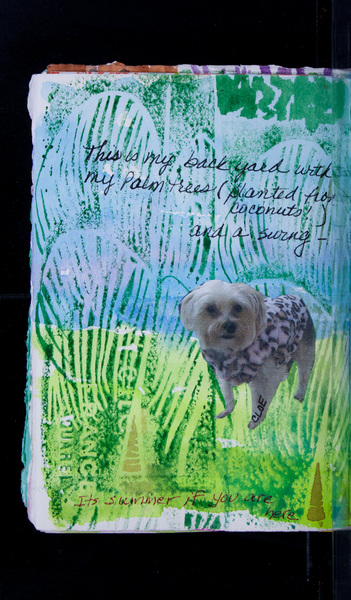 This is my back yard with
my Palm trees (planted from
coconuts)
and a swing -
CLOE
Its summer if you are
here